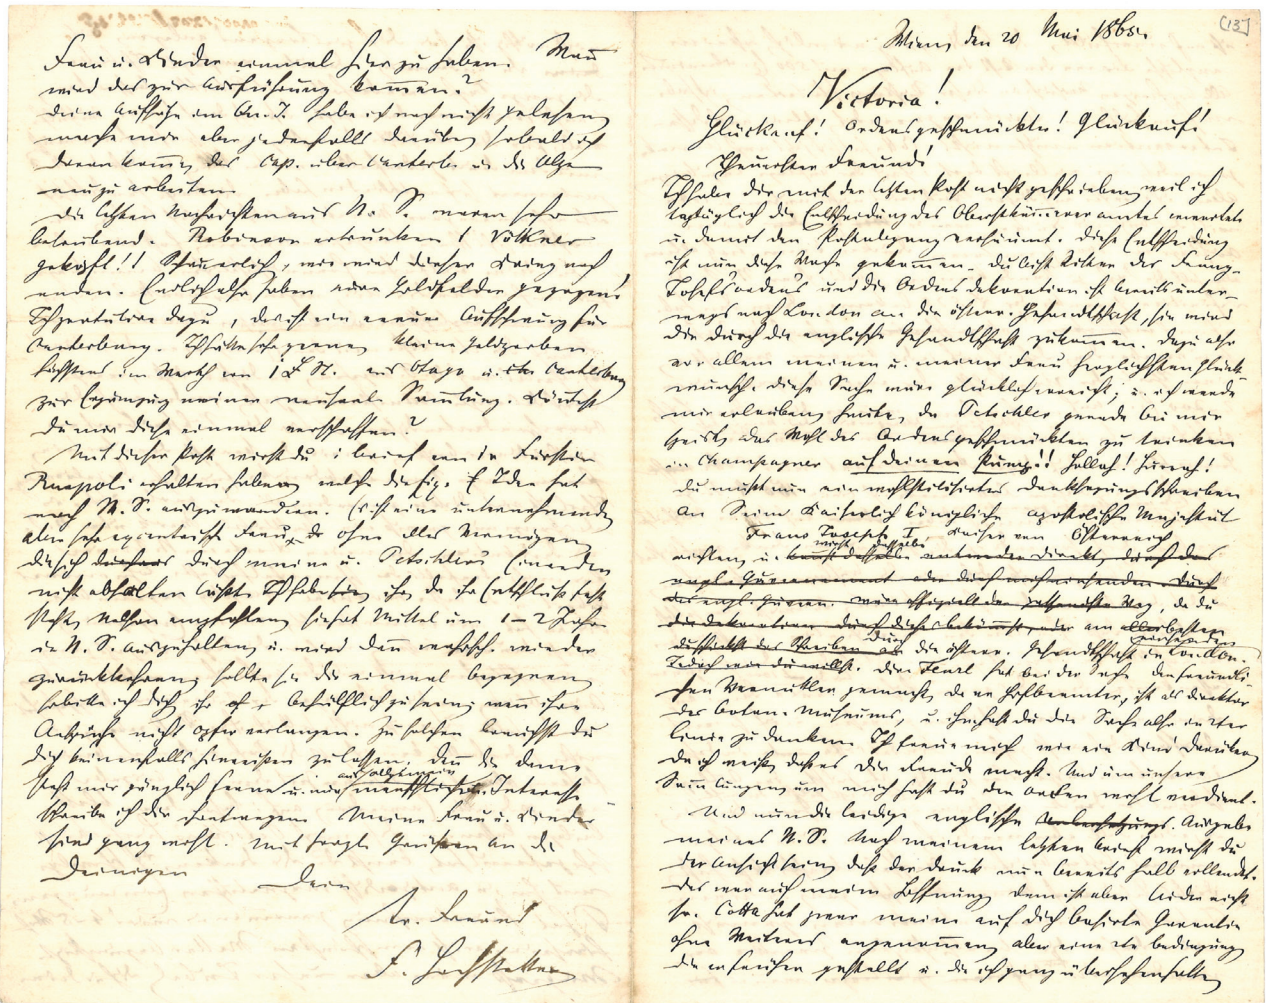 Frau u. Kinder einmal hier zu haben. Wann
wird das zur Ausführung kommen?
Deine Aufsätze im habe ich noch nicht gelesen,
mache mir aber jedenfalls darüber, sobald ich
daran komme, das Cap. über Canterb. u. die Alpen
neu zu arbeiten.
Die letzten Nachrichten aus N. S. waren sehr
betrübend. Robinson ertrunken, Völkner
geköpft!! Schauerlich, wie wird dieser Krieg noch
enden. Endlich also haben eure Goldfelder gezogen!
Ich gratulire dazu, das ist ein neuer Aufschwung für
Canterbury. Ich hätte sehr gerne kleine Goldproben
höchstens im Werth von 1 £ St. aus Otago u. Canterbury
zur Ergänzung meiner neuseel. Sammlung. Könntest
du mir diese einmal verschaffen?
Mit dieser Post wirst du 1 Brief von der Fürstin
Ruspoli erhalten haben, welche die fixe Idee hat
nach N. S. auszuwandern. Es ist eine unternehmende
aber sehr excentrische Frau, ohne alles Vermögen,
die sich durch meine u. Petschlers Einreden
nicht abhalten liess. Ich habe ihr, da ihr Entschluss fest
steht, Nelson empfohlen, sie hat Mittel um 1–2 Jahre
in N. S. auszuhalten, u. wird dann wahrsch. wieder
zurückkehren; sollte sie dir einmal begegnen
so bitte ich dich, ihr behülflich zu sein, wenn ihre
Ansprüche nicht Opfer verlangen. Zu solchen brauchst du
dich keinenfalls hinreissen zu lassen, denn die Dame
steht mir gänzlich ferne u. nur aus allgemein menschlichem Interesse
schreibe ich dir ihretwegen. Meine Frau u. Kinder
sind ganz wohl. Mit Grüssen an die
Deinigen Dein
tr. Freund
F. Hochstetter
[13]
Wien, den 20 Mai 1865.
Victoria!
Glückauf! Ordensgeschmückter! Glückauf!
Theuerster Freund!
Ich habe dir mit der letzten Post nicht geschrieben, weil ich
tagtäglich die Entscheidung des Oberstkämmereramtes erwartete
u. damit den Postabgang versäumt. Diese Entscheidung
ist nun diese Woche gekommen. Du bist Ritter des Franz-
Josefs Ordens und die Ordensdekoration ist bereits unter-
wegs nach London an die österr. Gesandtschaft, sie wird
dir durch die englische Gesandtschaft zukommen. Dazu also
vor allem meinen u. meiner Frau herzlichsten Glück-
wunsch. Diese Sache wäre glücklich erreicht; u. ich werde
mir erlauben, heute, da Petschler gerade bei mir
speist, das Wohl des Ordensgeschmückten zu trinken
in Champagner auf deinen Pump!! Hollah! Hurrah!
Du musst nun ein wohlstilisirtes Danksagungsschreiben
an Seine Kaiserlich königliche apostolische Majestät
Franz Joseph I. Kaiser von Österreich
richten, u. dasselbe entweder direkt, durch das
engl. Gouvernement oder durch mich einsenden. Durch
das engl. Gouver. wäre offiziell der passendste Weg, da du
die Dekoration durch dieses bekömmst, oder am allerbesten
du schickst das Schreiben durch die österr. Gesandtschaft in London.
Jedoch wie du willst. Den Fenzl hat bei der Sache den freundli-
chen Vermittler gemacht, da er Hofbeamter, ist als Direktor
des botan. Museums, u. ihm hast du die Sache also in 2ter
Linie zu danken. Ich freue mich wie ein Kind darüber,
da ich weiss, dass es dir Freude macht. Und um unsere
Sammlungen, um mich hast du den Orden wohl verdient.
Und nun die leidige englische Ausgabe
meines N. S. Nach meinem letzten Brief wirst du
der Ansicht sein, dass der Druck nun bereits halb vollendet.
Das war auch meine Hoffnung, dem ist aber leider nicht
so. Cotta hat zwar meine auf dich basirte Garantie
ohne Weiteres angenommen, aber eine 2te Bedingung
die er früher gestellt u. die ich ganz übersehen hatte,